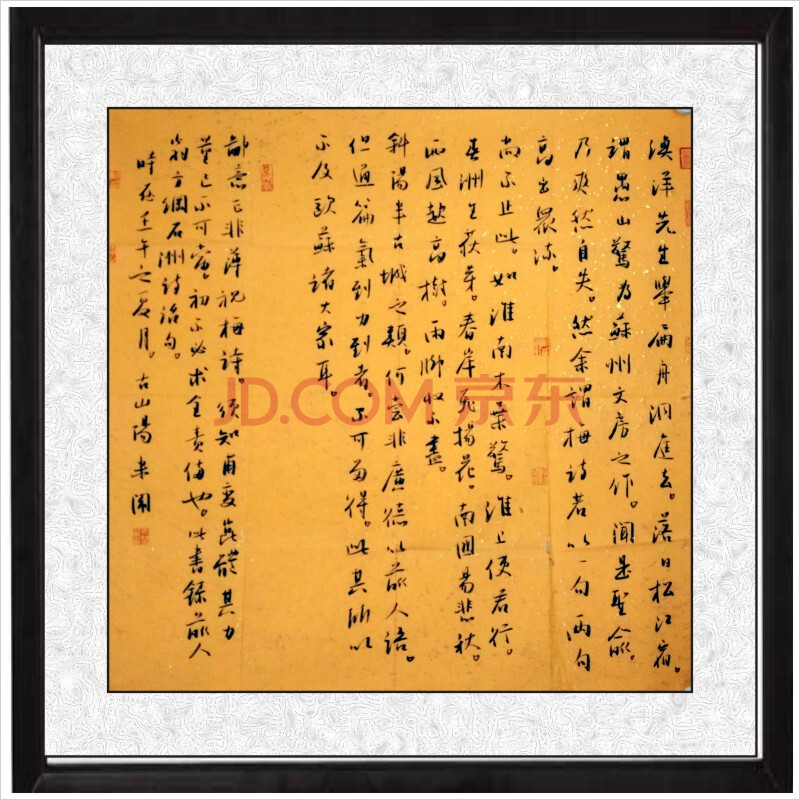 漁洋先生舉扁舟洞庭去。落日松江宿。
謂愚山驚為蘇州文房之作。聞是聖俞。
乃爽然自失。然余謂梅詩若以一句兩句
高出眾流。
尚不止此。如淮南木葉驚。淮上使君行。
春洲生荻芽。春岸飛楊花。南國易悲秋。
西風起高樹。雨腳收不盡。
斜陽半古城之類。何嘗非廣德以前人語。
但通篇氣到力到者。不可多得。此其所以
不及歐蘇諸大家耳。
鄙意亦非薄視梅詩。須知甫變體其力
蓋已不可當。初不必求全責備也。以書錄前人
翁方綱石洲詩話句。
時在壬午之夏月。古山陽
JD.COM 京东